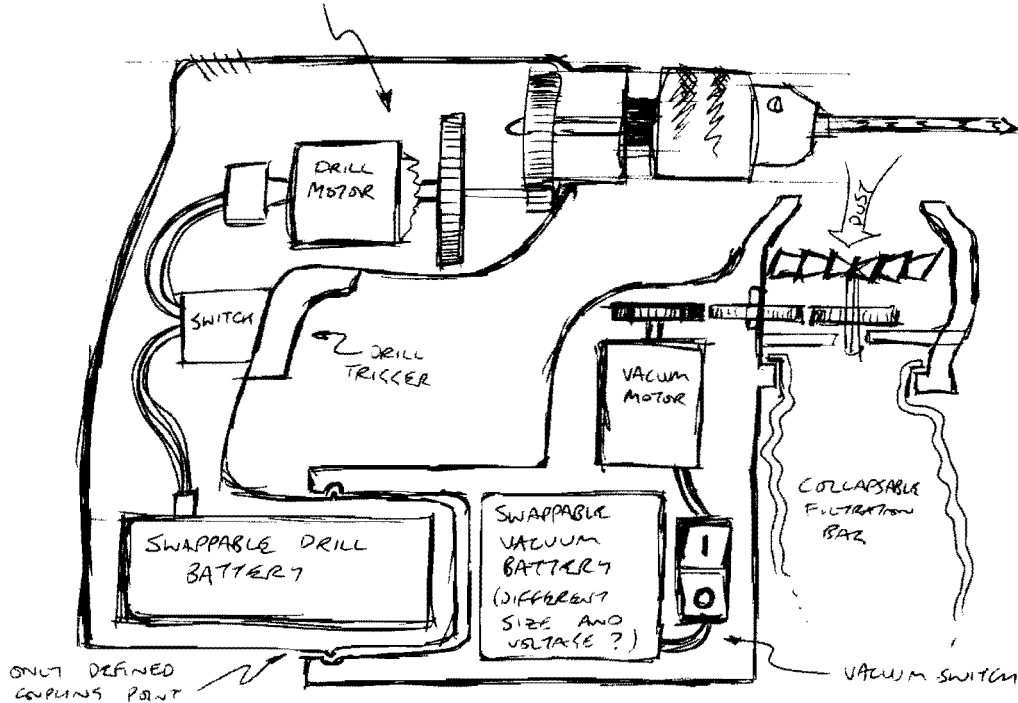 DRILL
MOTOR
DUST
SWITCH
DRILL
TRIGGER
VACUM
MOTOR
COLLAPSABLE
FILTRATION
BAG
SWAPPABLE DRILL
BATTERY
SWAPPABLE
VACUUM
BATTERY
(DIFFERENT
SIZE AND
VOLTAGE ?)
I
O
ONLY DEFINED
COUPLING POINT
VACUUM SWITCH